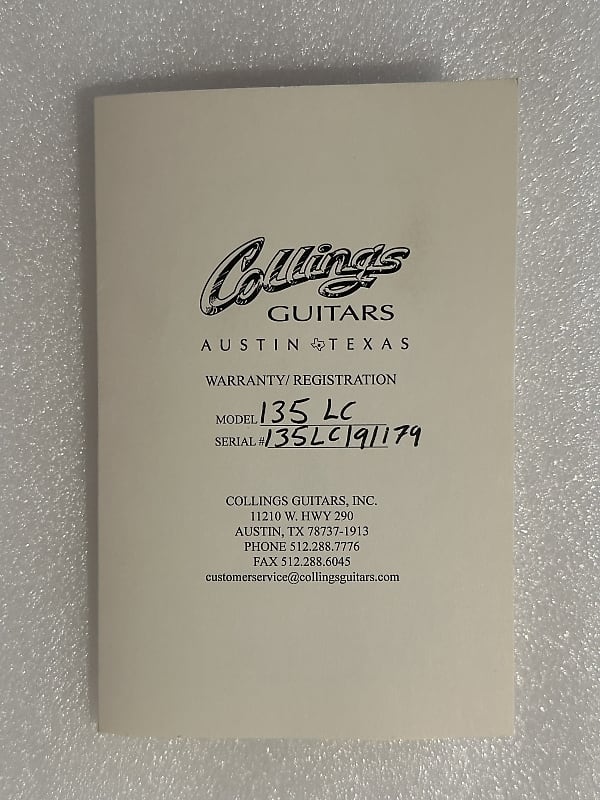 Collings
GUITARS
AUSTIN TEXAS
WARRANTY/ REGISTRATION
MODEL 135 LC
SERIAL # 135LC191179
COLLINGS GUITARS, INC.
11210 W. HWY 290
AUSTIN, TX 78737-1913
PHONE 512.288.7776
FAX 512.288.6045
customerservice@collingsguitars.com